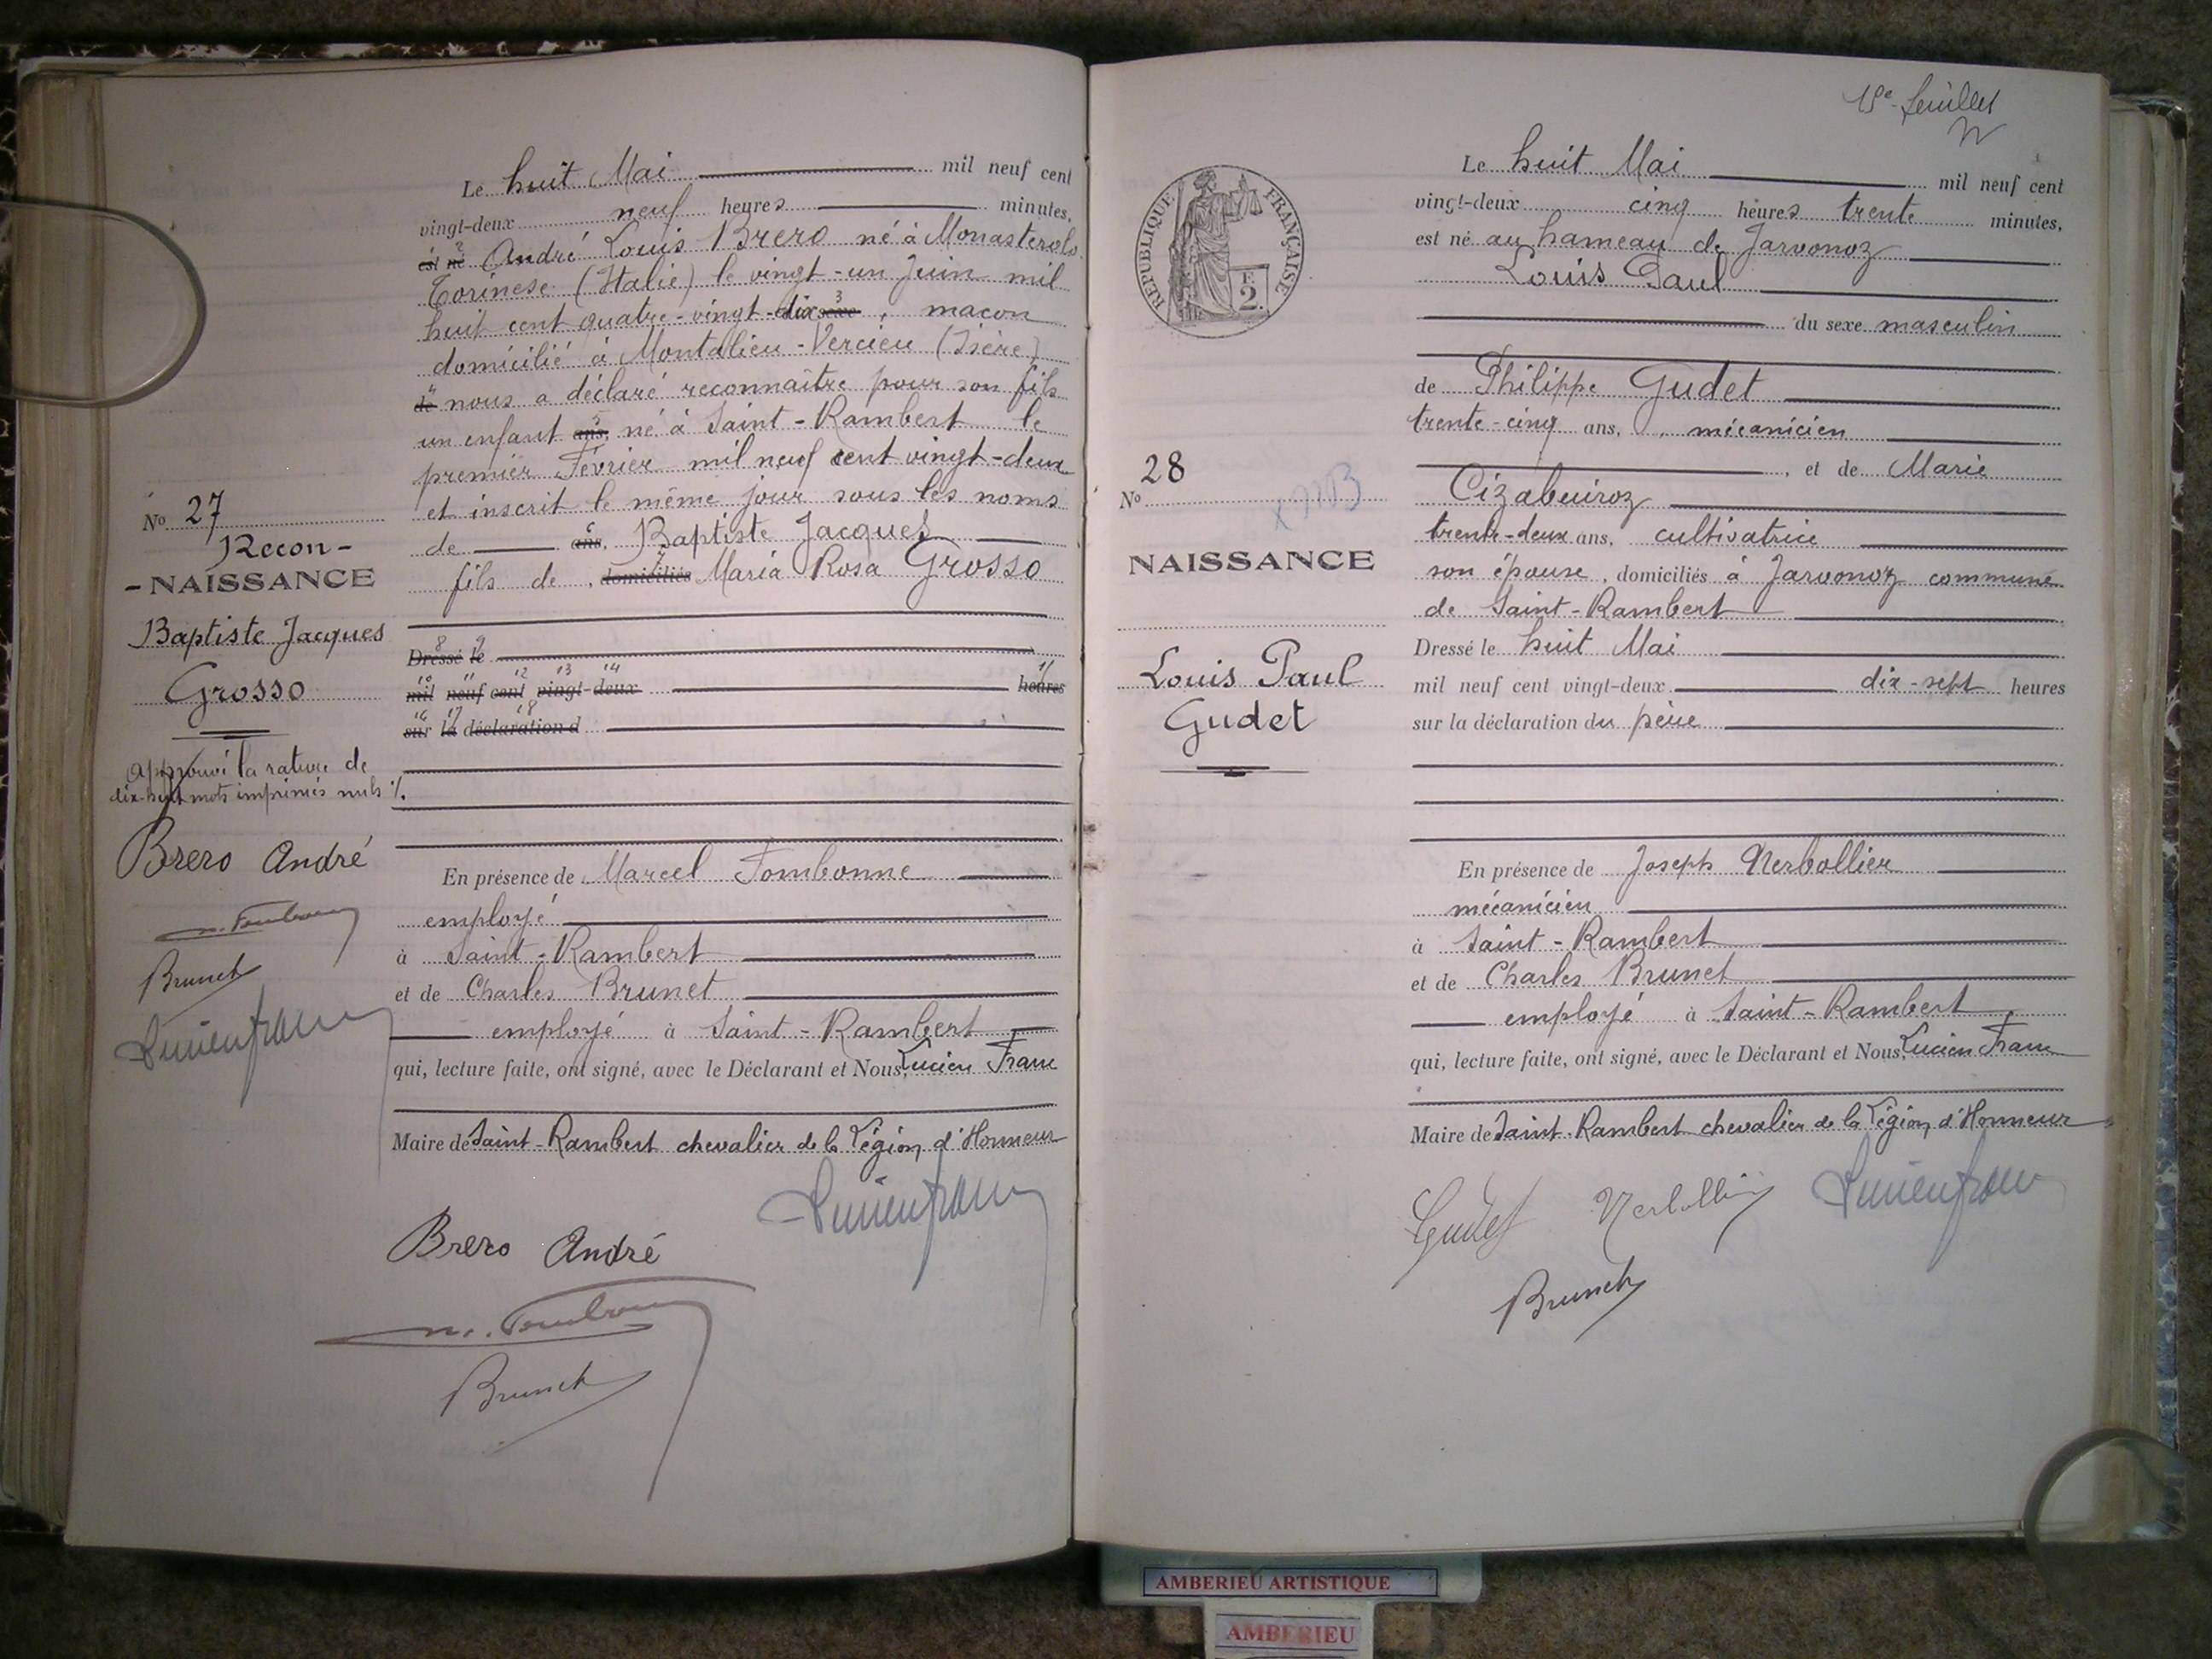 Le huit Mai mil neuf cent
vingt-deux neuf heures minutes,
est né André Louis Brero né à Monasterolo
Torinese (Italie) le vingt-un Juin mil
huit cent quatre-vingt-dix sexe, macon
domicilié à Montalieu-Vercieu (Isère)
de nous a déclaré reconnaître pour son fils
un enfant ans, né à Saint-Rambert le
premier Février mil neuf cent vingt-deux
et inscrit le même jour sous les noms
de ans, Baptiste Jacques
fils de, domiciliés Maria Rosa Grosso
Dressé le
mil neuf cent vingt-deux heures
sur la déclaration d
En présence de Marcel Fombonne
employé
à Saint-Rambert
et de Charles Brunet
employé à Saint-Rambert
qui, lecture faite, ont signé, avec le Déclarant et Nous, Lucien Franc
Maire de Saint-Rambert chevalier de la Légion d'Honneur
Brero André
Brunet
No 27
Recon-
-NAISSANCE
Baptiste Jacques
Grosso
Approuvé la rature de
dix-huit mots imprimés nuls
Brero André
Brunet
15e feuillet
REPUBLIQUE FRANÇAISE
F.
2.
No 28
NAISSANCE
Louis Paul
Gudet
Le huit Mai mil neuf cent
vingt-deux cinq heures trente minutes,
est né au hameau de Javornoz
Louis Paul
du sexe masculin
de Philippe Gudet
trente-cinq ans, mécanicien
, et de Marie
Cizabuiroz
trente-deux ans, cultivatrice
son épouse, domiciliés à Javornoz commune
de Saint-Rambert
Dressé le huit Mai
mil neuf cent vingt-deux dix-sept heures
sur la déclaration du père
En présence de Joseph Nerbollier
mécanicien
à Saint-Rambert
et de Charles Brunet
employé à Saint-Rambert
qui, lecture faite, ont signé, avec le Déclarant et Nous, Lucien Franc
Maire de Saint-Rambert chevalier de la Légion d'Honneur
Gudet Nerbollier
Brunet
AMBERIEU ARTISTIQUE
AMBERIEU